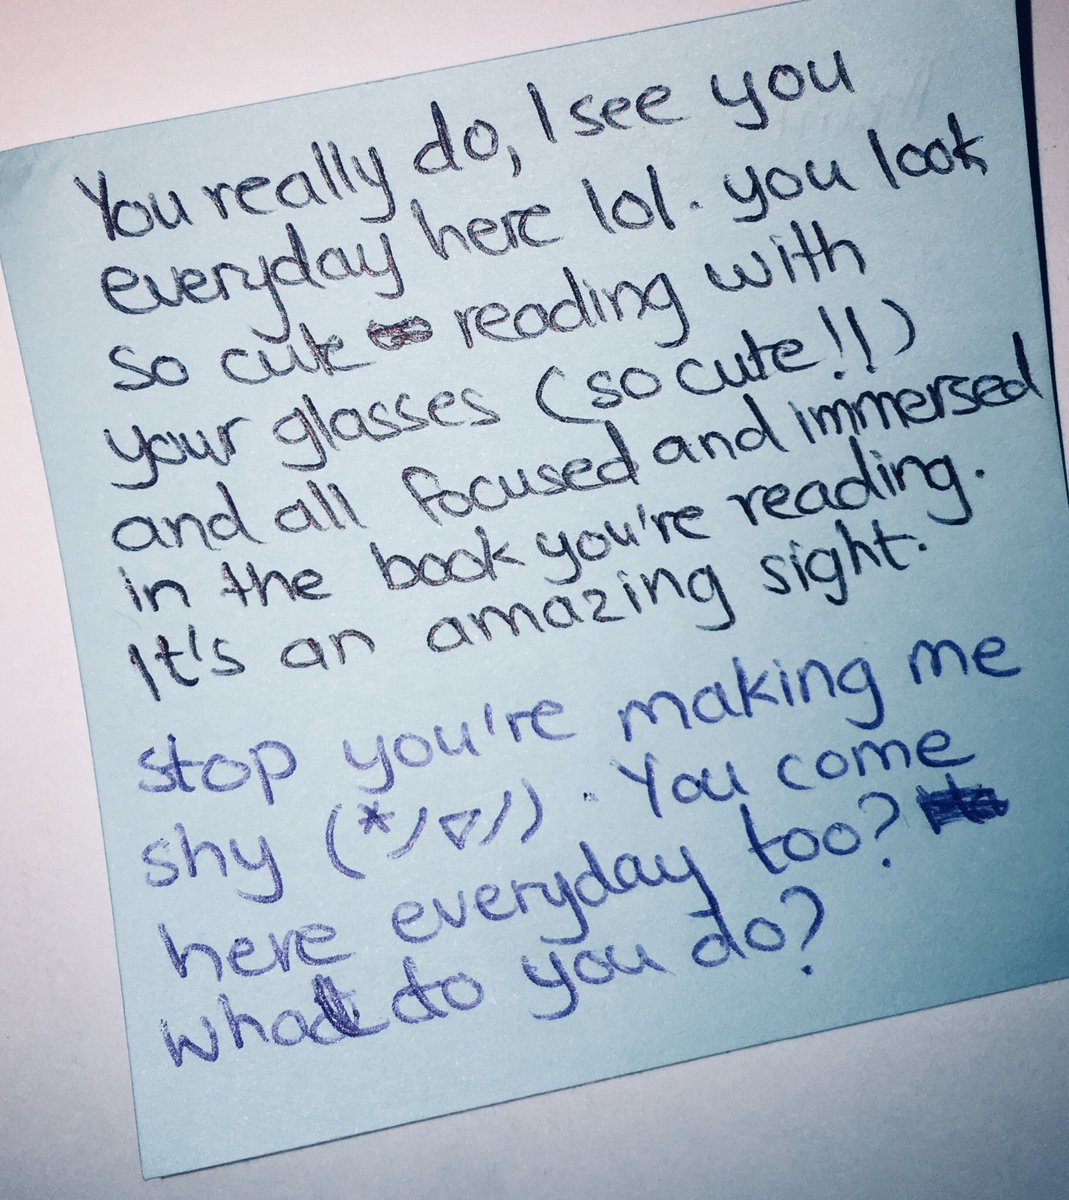 You really do, I see you
everyday here lol. you look
so cute reading with
your glasses (so cute!!)
and all focused and immersed
in the book you're reading.
It's an amazing sight.
stop you're making me
shy (*ノ▽ノ). You come
here everyday too?
what do you do?